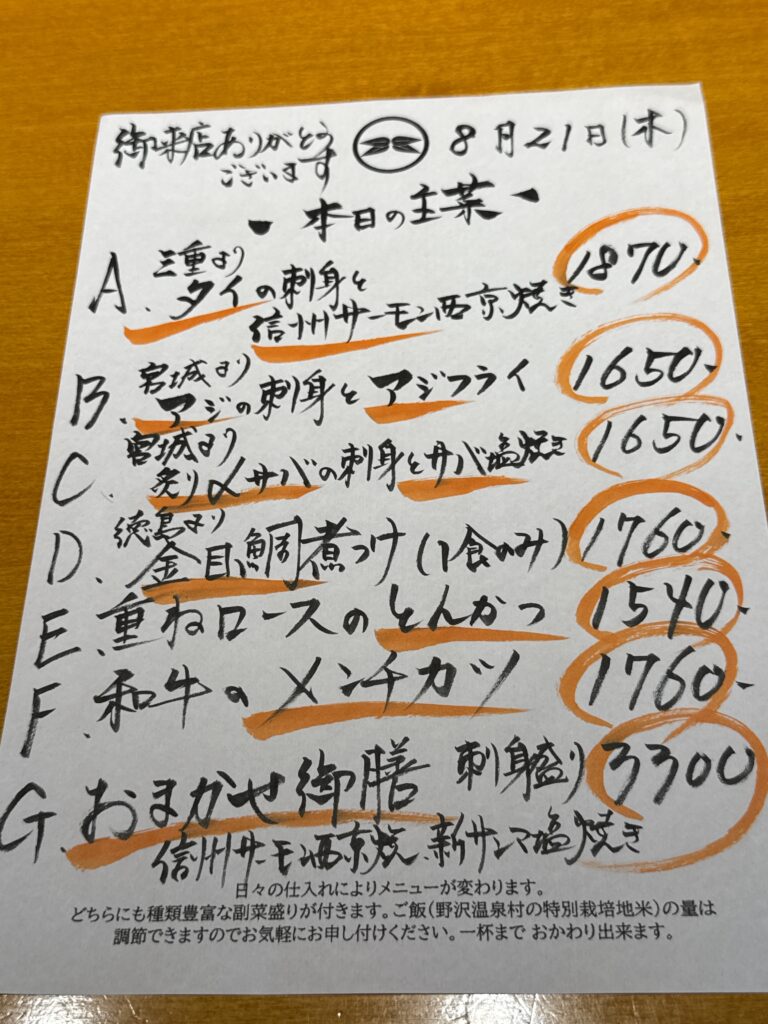 御来店ありがとう
ございます
8月21日(木)
本日の主菜
A. 三重より
タイの刺身と
信州サーモン西京焼き 1870-
B. 宮城より
アジの刺身とアジフライ 1650-
C. 宮城より
炙り〆サバの刺身とサバ塩焼き 1650-
D. 徳島より
金目鯛煮つけ(1食のみ) 1760-
E. 重ねロースのとんかつ 1540-
F. 和牛のメンチカツ 1760-
G. おまかせ御膳 刺身盛り 3300
信州サーモン西京焼、新サンマ塩焼き
日々の仕入れによりメニューが変わります。
どちらにも種類豊富な副菜盛りが付きます。ご飯(野沢温泉村の特別栽培地米)の量は
調節できますのでお気軽にお申し付けください。一杯まで おかわり出来ます。